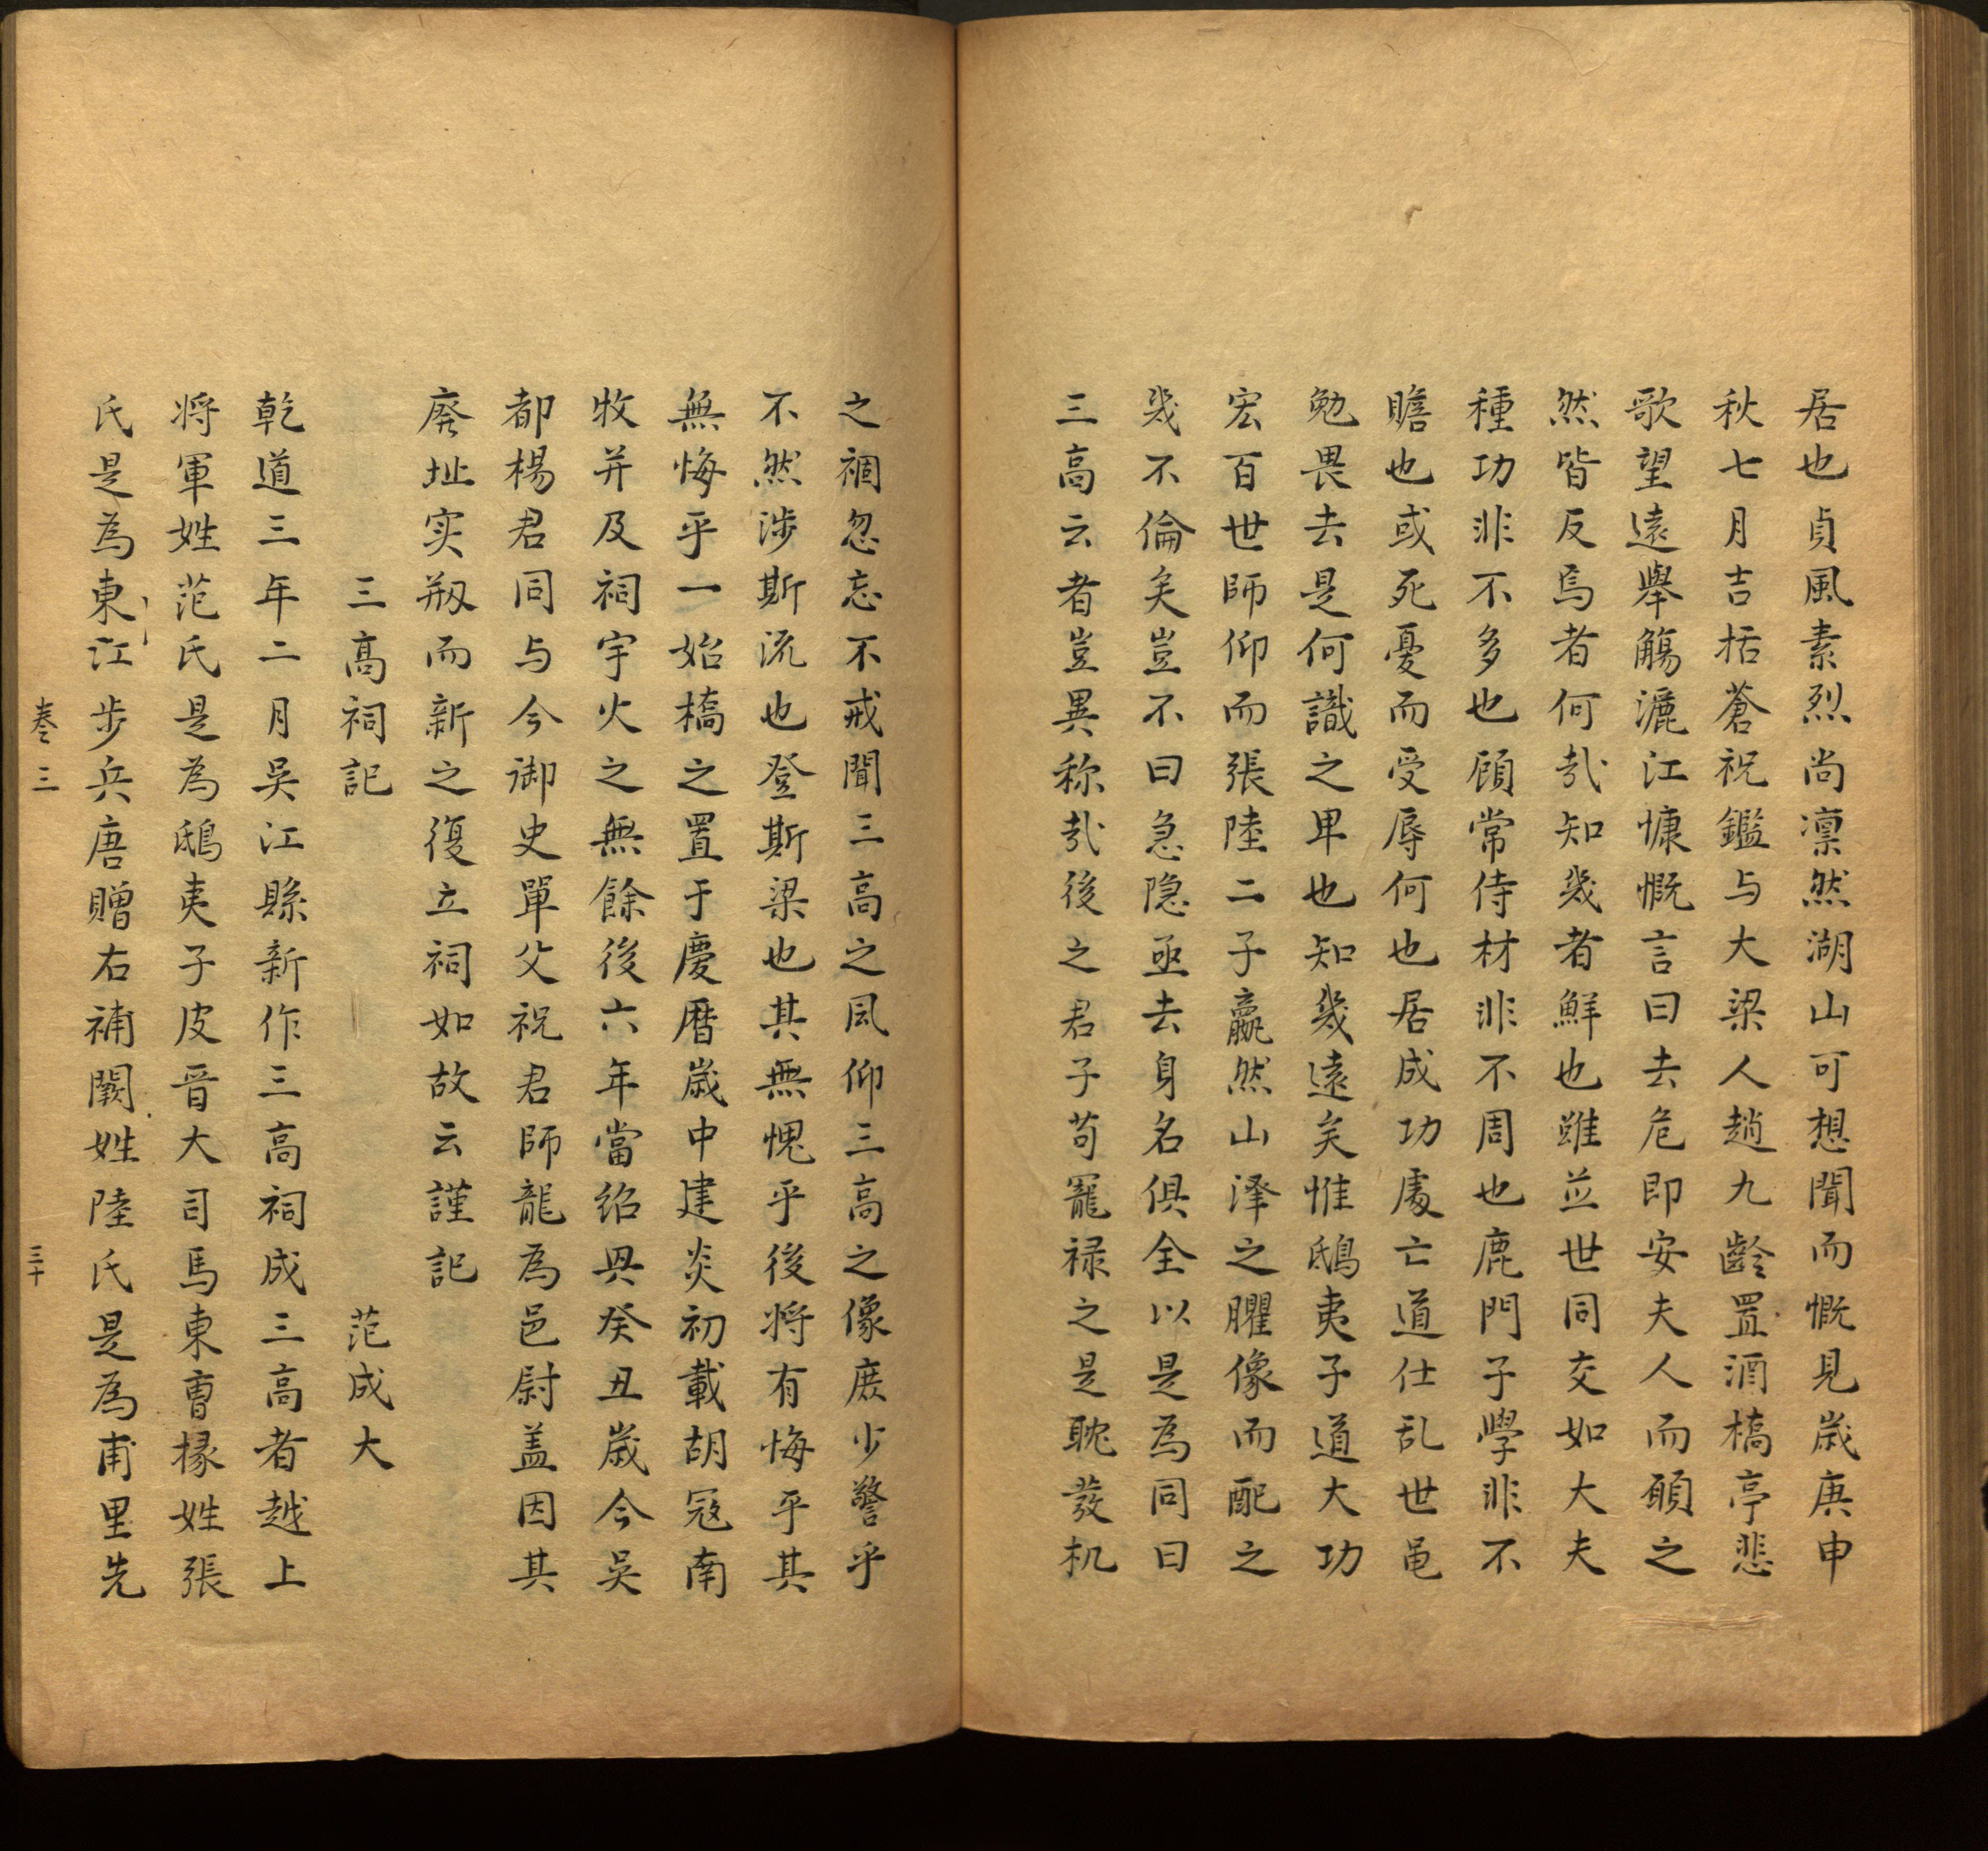 居也貞風素烈尚凛然湖山可想聞而慨見歲庚申
秋七月吉括蒼祝鑑与大梁人趙九齡置酒橋亭悲
歌望遠舉觴灑江慷慨言曰去危即安夫人而願之
然皆反焉者何㢤知幾者鮮也雖並世同交如大夫
種功非不多也顧常侍材非不周也鹿門子學非不
贍也或死憂而受辱何也居成功處亡道仕乱世黽
勉畏去是何識之卑也知幾遠矣惟鴟夷子道大功
宏百世師仰而張陸二子羸然山澤之臞像而配之
幾不倫矣豈不曰急隐亟去身名俱全以是為同曰
三高云者豈異称㢤後之君子苟寵禄之是耽發机
之禍忽忘不戒聞三高之風仰三高之像庶少警乎
不然涉斯流也登斯梁也其無愧乎後将有悔乎其
無悔乎一始橋之置于慶曆歲中建炎初載胡冦南
牧并及祠宇火之無餘後六年當紹興癸丑歲今吳
都楊君同与今御史單父祝君師龍為邑尉盖因其
廃址实剏而新之復立祠如故云謹記
三高祠記　范成大
乾道三年二月吳江縣新作三高祠成三高者越上
将軍姓范氏是為鴟夷子皮晋大司馬東曹掾姓張
氏是為東江步兵唐贈右補闕姓陸氏是為甫里先
卷三　三十